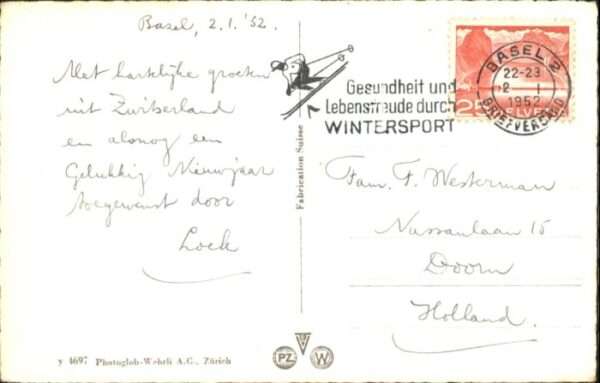 Basel, 2.1.'52.
Met hartelijke groeten
uit Zwitserland
en alsnog een
Gelukkig Nieuwjaar
toegewenst door
Loek
y 4697 Photoglob-Wehrli A.G., Zürich
Fabrication Suisse
Gesundheit und
Lebensfreude durch
WINTERSPORT
BASEL 2
22-23
2-I
1952
BRIEFVERSAND
25
HELVETIA
Fam. F. Westerman
Nassaulaan 15
Doorn
Holland.
PZ W